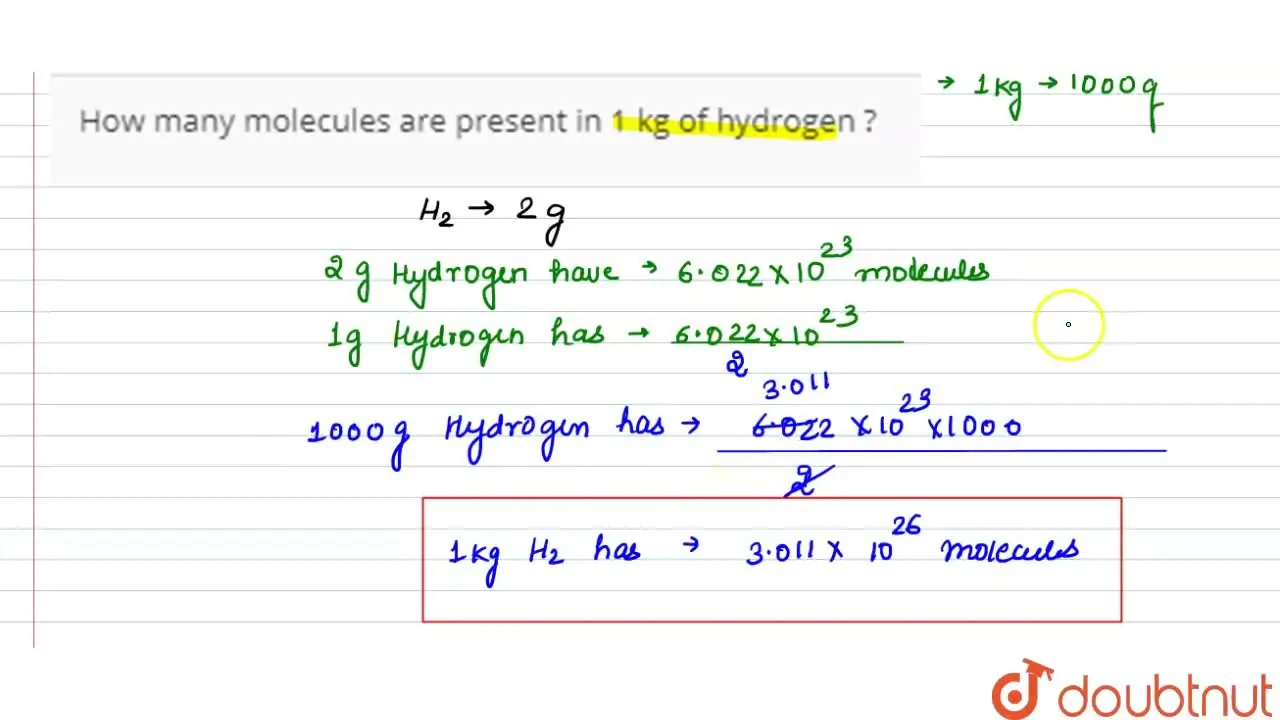 → 1kg → 1000g
How many molecules are present in 1 kg of hydrogen ?
H₂ → 2g
2g Hydrogen have → 6.022×10²³ molecules
1g Hydrogen has → 6.022×10²³
2
3.011
1000g Hydrogen has → 6.022 ×10²³ ×1000
2
1kg H₂ has → 3.011× 10²⁶ molecules
doubtnut